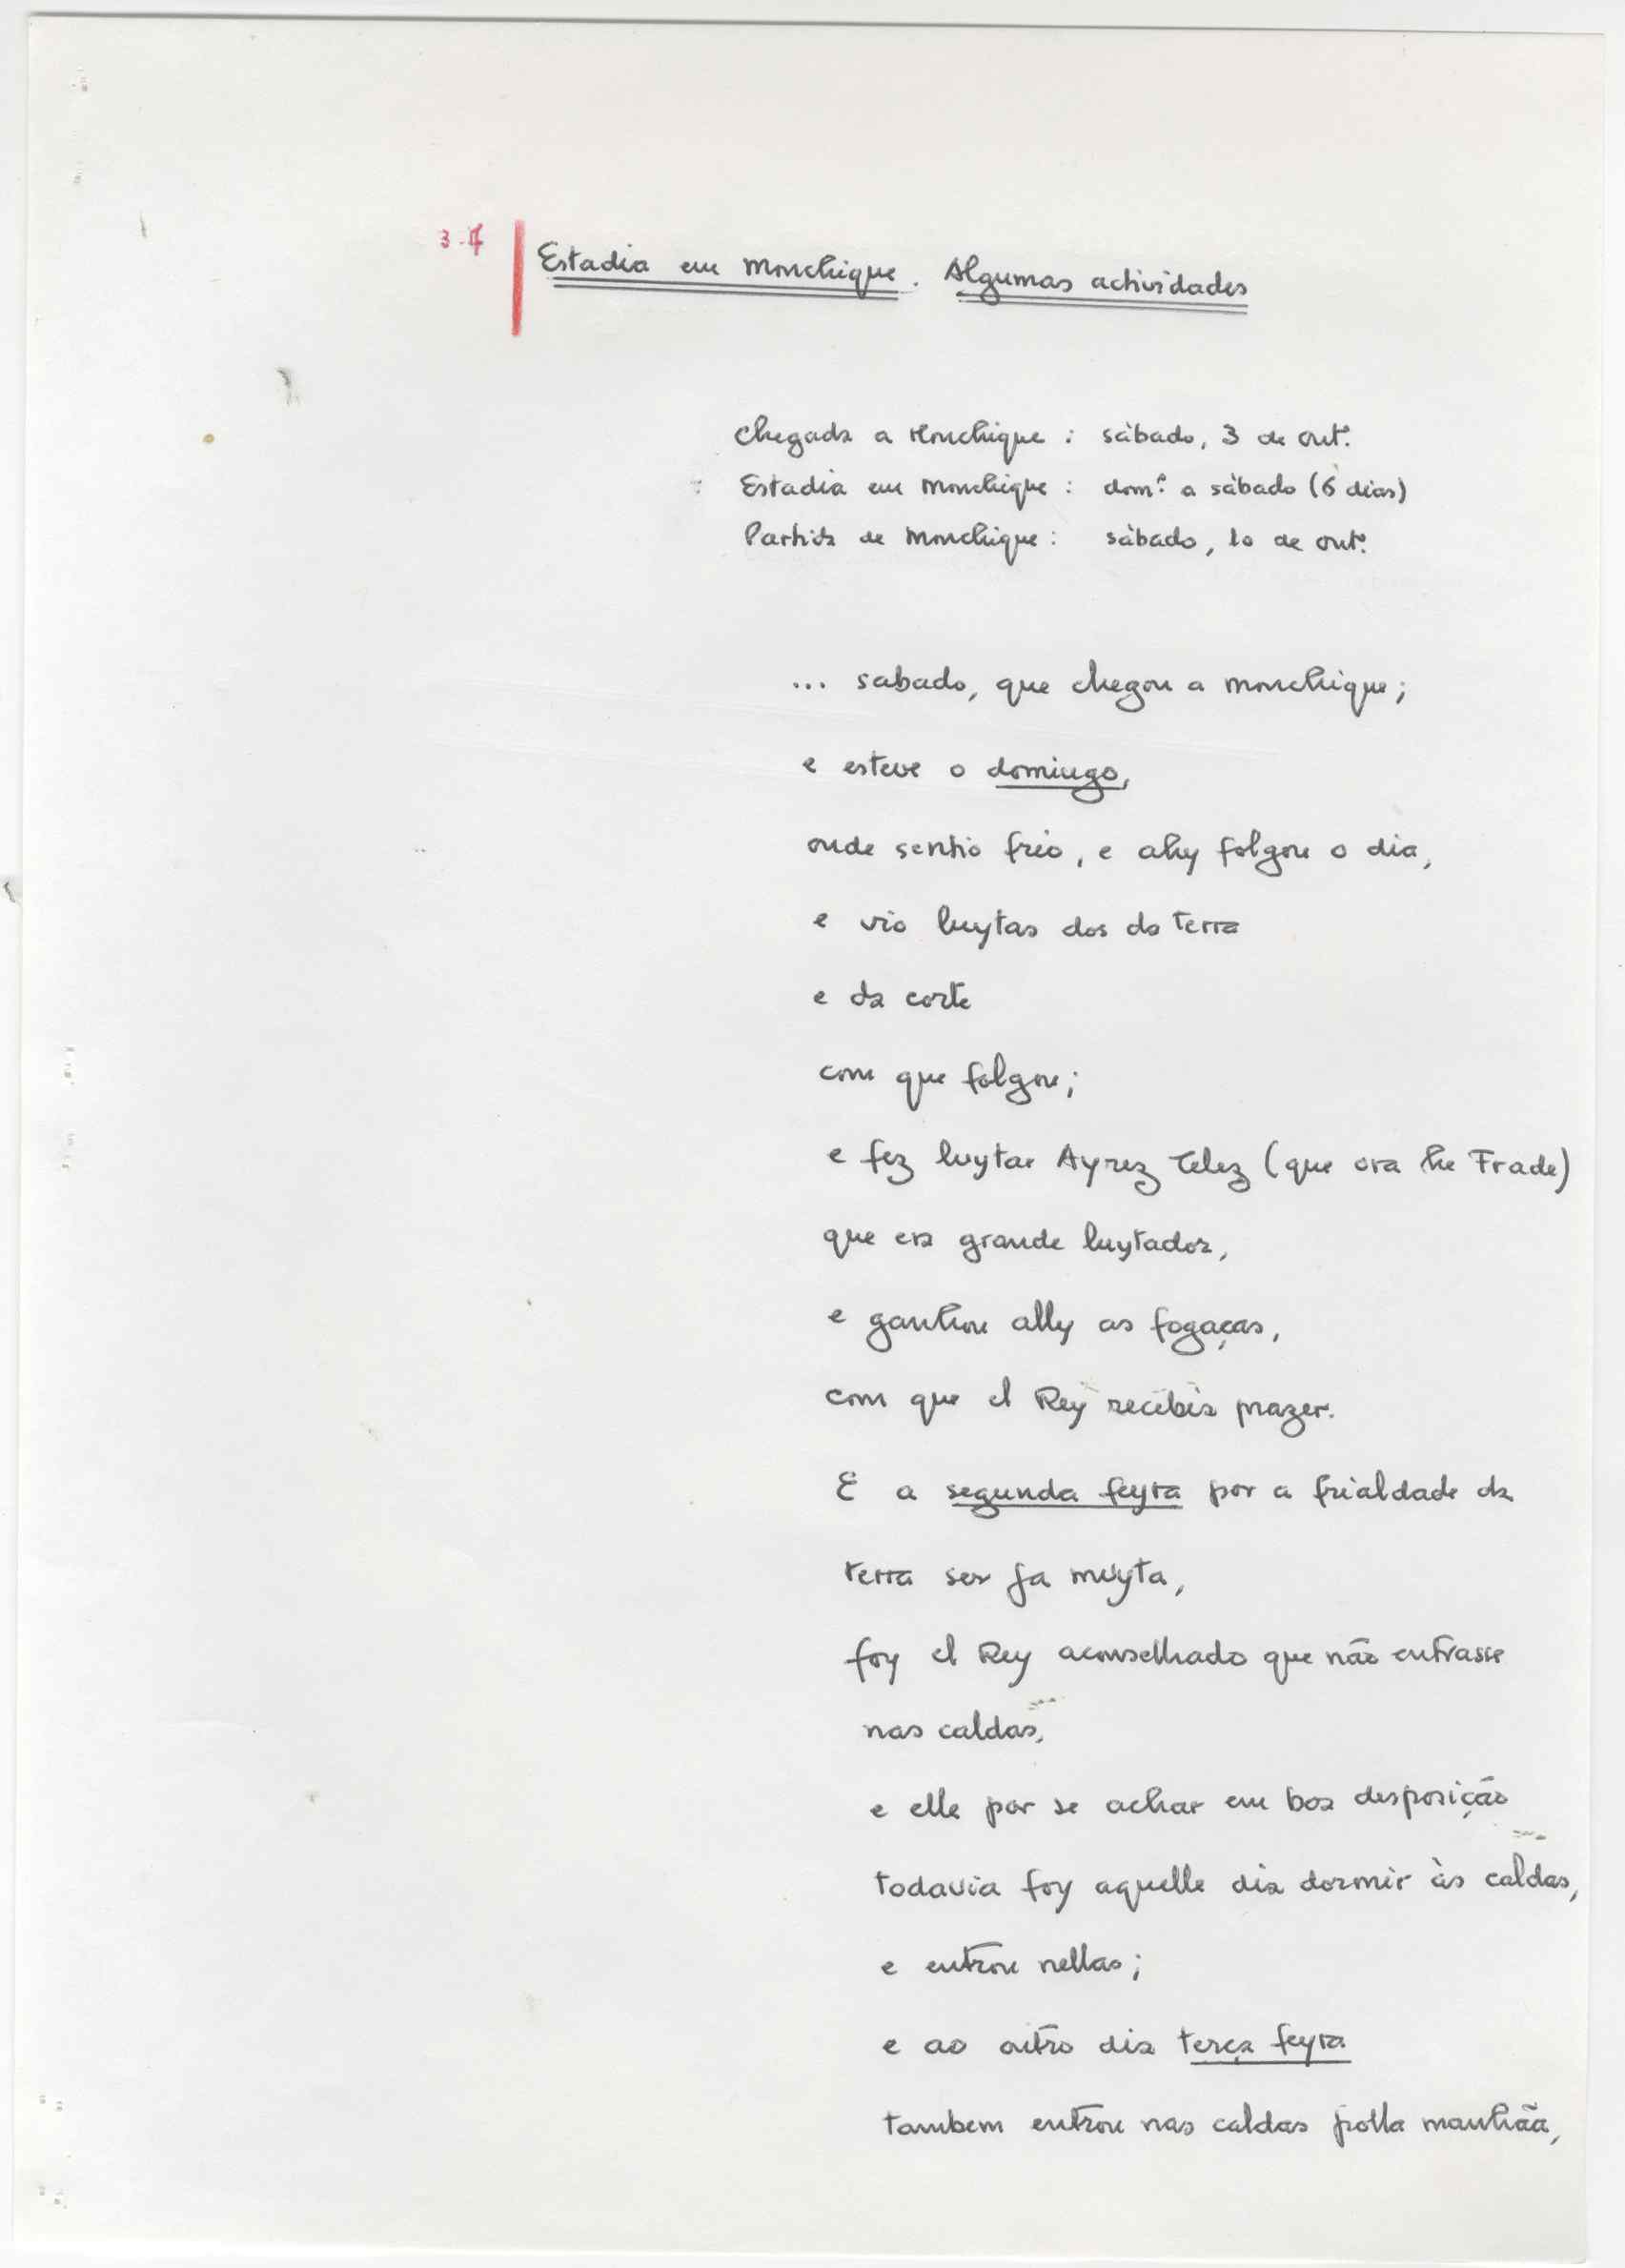 3.7
Estadia em Monchique. Algumas actividades
Chegada a Monchique: sábado, 3 de outº.
Estadia em Monchique: domº. a sábado (6 dias)
Partida de Monchique: sábado, 10 de outº.
... sabado, que chegou a Monchique;
e esteve o domingo,
onde sentio frio, e ahy folgou o dia,
e vio luytas dos da terra
e da corte
com que folgou;
e fez luytar Ayrez Telez (que ora he Frade)
que era grande luytador,
e ganhou ally as fogaças,
com que el Rey recebia prazer.
E a segunda feyra por a frialdade da
terra ser ja muyta,
foy el Rey aconselhado que não entrasse
nas caldas,
e elle por se achar em boa desposição
todavia foy aquelle dia dormir às caldas,
e entrou nellas;
e ao outro dia terça feyra
tambem entrou nas caldas polla manhãa,